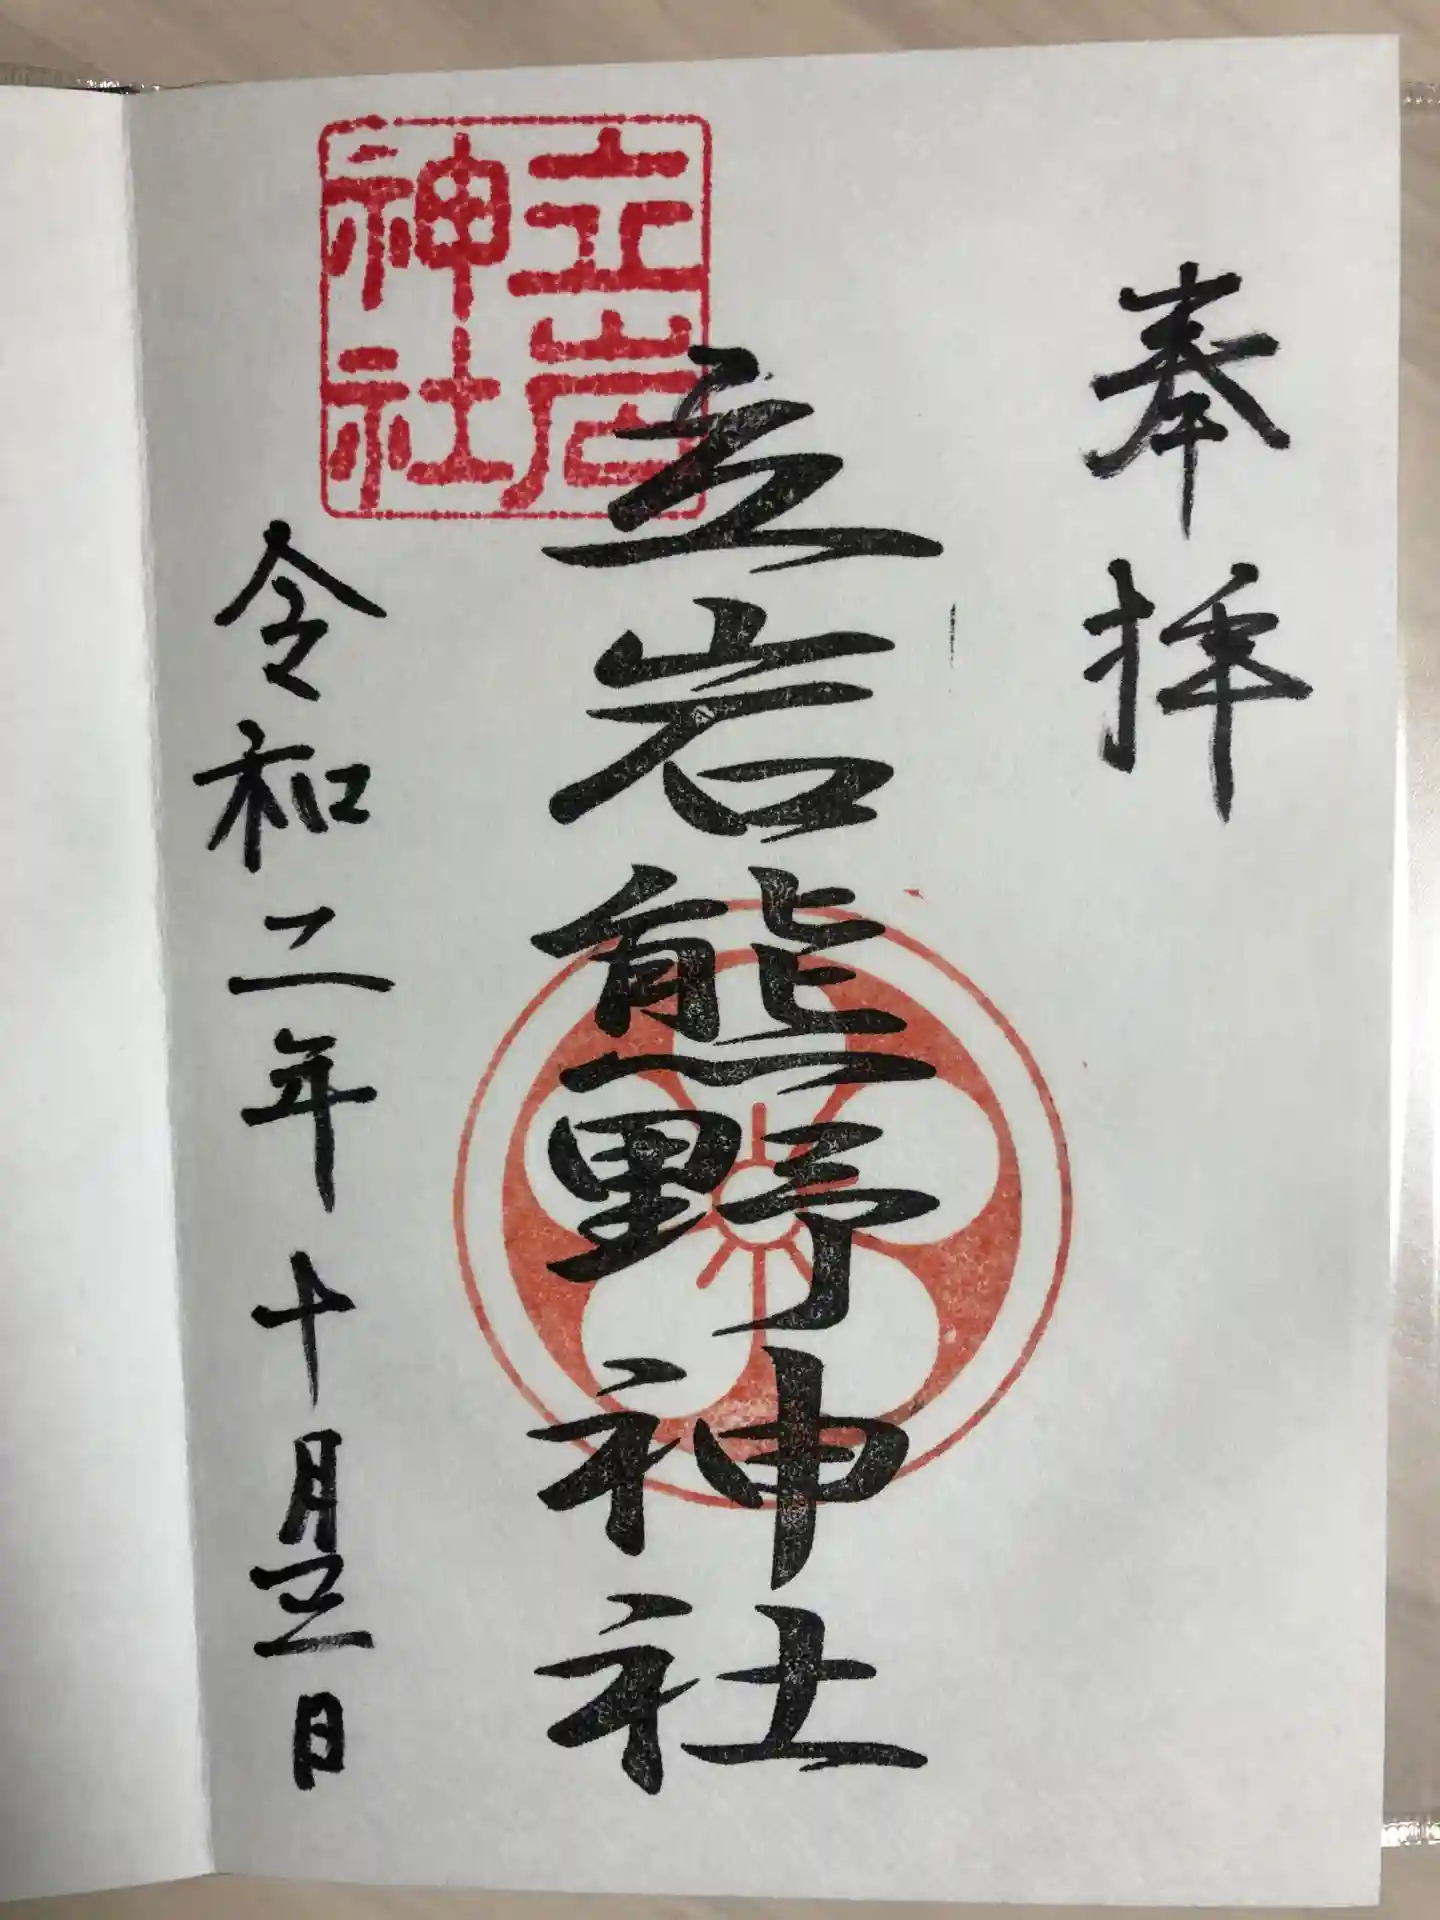 奉拝
立岩熊野神社
立岩
神社
令和二年十月五日